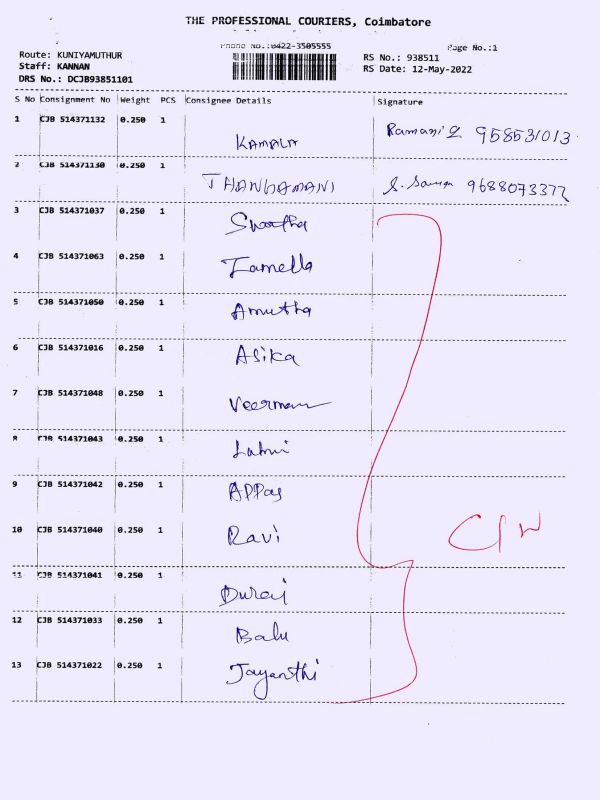 THE PROFESSIONAL COURIERS, Coimbatore
Phone No.:0422-3505555
Page No.:1
Route: KUNIYAMUTHUR
RS No.: 938511
Staff: KANNAN
RS Date: 12-May-2022
DRS No.: DCJB93851101
S No Consignment No Weight PCS Consignee Details Signature
1 CJB 514371132 0.250 1 KAMALA Ramani 958531013
2 CJB 514371130 0.250 1 THANGAMANI 9688073372
3 CJB 514371037 0.250 1 Swatha
4 CJB 514371063 0.250 1
5 CJB 514371050 0.250 1 Amutha
6 CJB 514371016 0.250 1 Asika
7 CJB 514371048 0.250 1
8 CJB 514371043 0.250 1
9 CJB 514371042 0.250 1 APPas
10 CJB 514371040 0.250 1 Ravi
11 CJB 514371041 0.250 1 Durai
12 CJB 514371033 0.250 1 Balu
13 CJB 514371022 0.250 1 Jayanthi